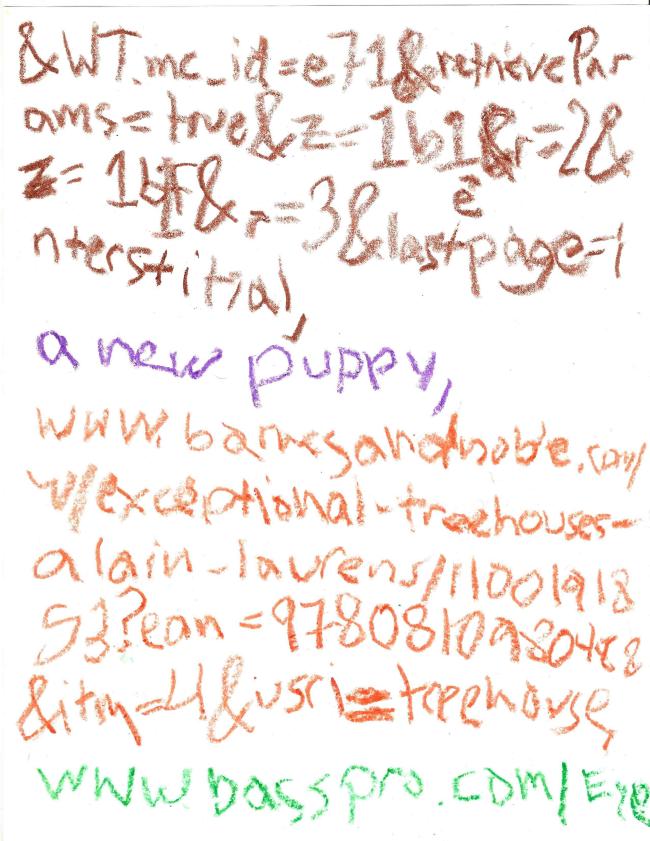 &WT.mc_id=e71&retrievePar
ams=true&z=1b1&r=2&
z=1b1&r=3&lastpage=i
e
nterstitial,
a new puppy,
www.barnesandnoble.com/
w/exceptional-treehouses-
alain-laurens/11001918
53?ean=9780810980488
&itm=4&usri=treehouse,
www.basspro.com/Eye